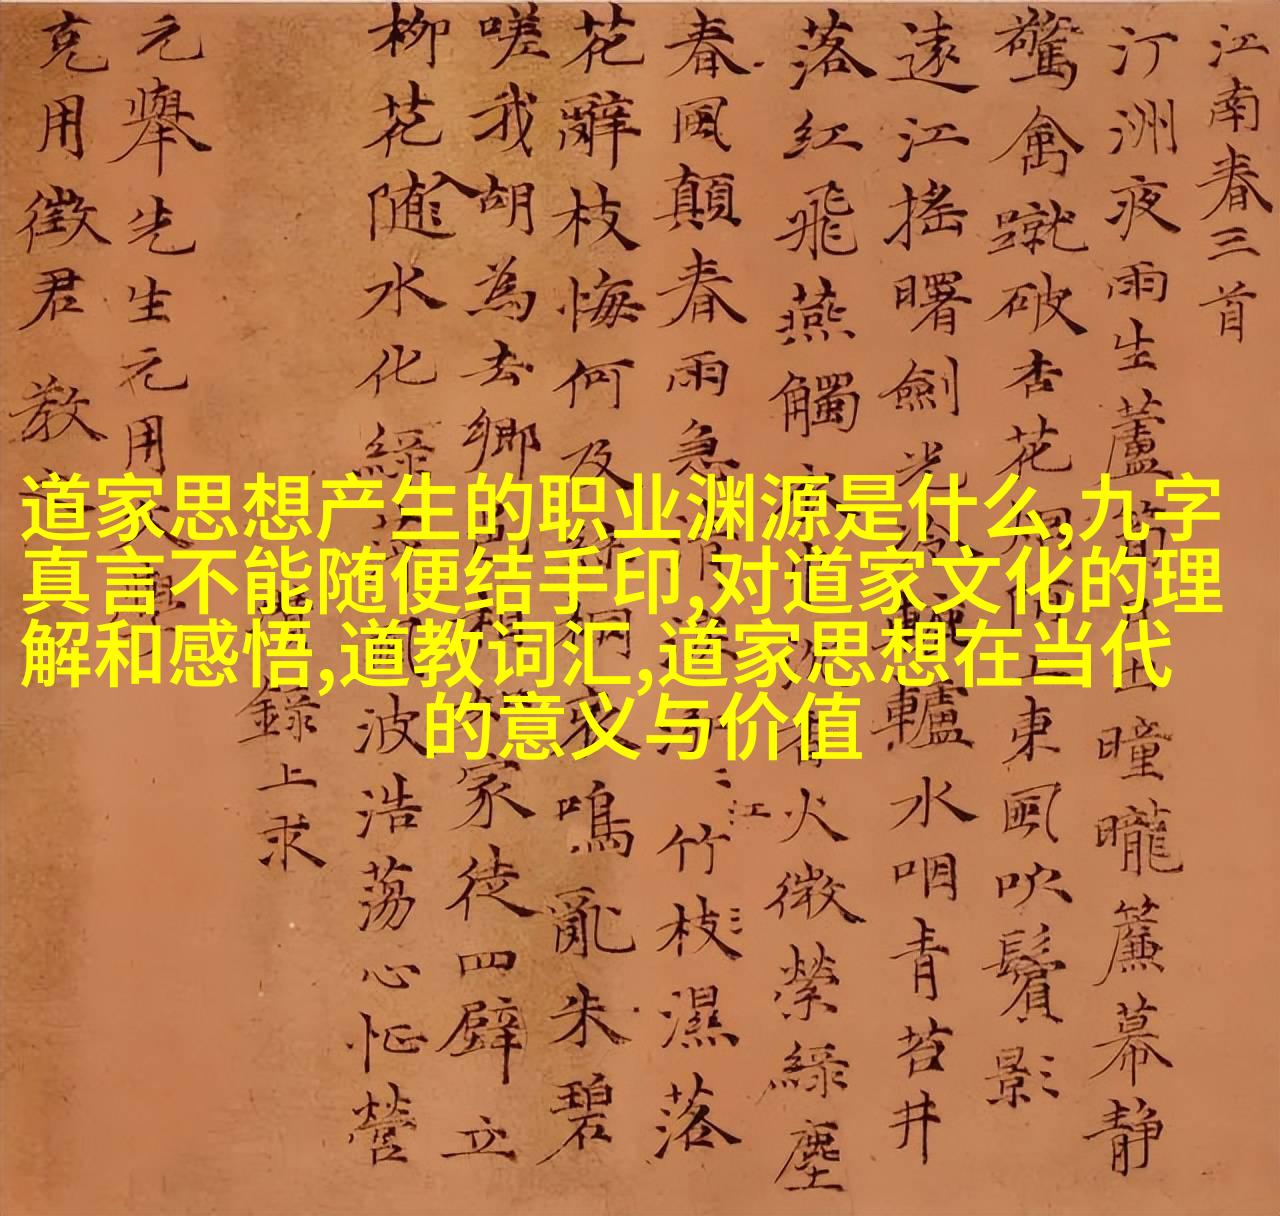 江南春三首
汀洲夜雨生蘆筍日出曈曨簾幕静
驚禽蹴破杏花烟陌上東風吹鬢影
遠江搖曙劍光冷轆轤水咽青苔井
落紅飛燕觸衣巾沉香火微縈綠塵
春風顛春雨急清淚泓泓江竹枝濕落
花辭枝悔何及絲桐哀鳴亂朱碧
嗟我胡為去鄉邑相如家徒四壁立
柳花入隨水化綠萍風波浩蕩心怔營
錄上求
元舉先生元用文學
克用徵君 教
道家思想产生的职业渊源是什么,九字
真言不能随便结手印,对道家文化的理
解和感悟,道教词汇,道家思想在当代
的意义与价值